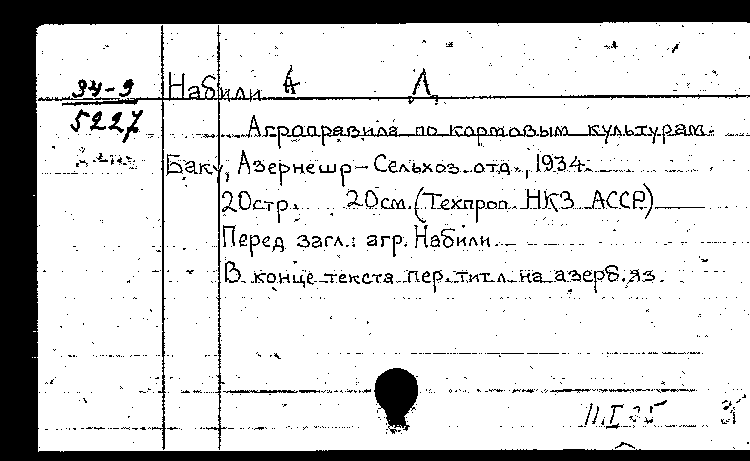 34-9
5227
Набили А Л,
Агроправила по кормовым культурам.
Баку, Азернешр-Сельхоз. отд., 1934.
20стр. 20см. (Техпроп НКЗ АССР)
Перед загл.: агр. Набили
В конце текста пер. тит. л. на азерб. яз.
11.I 35